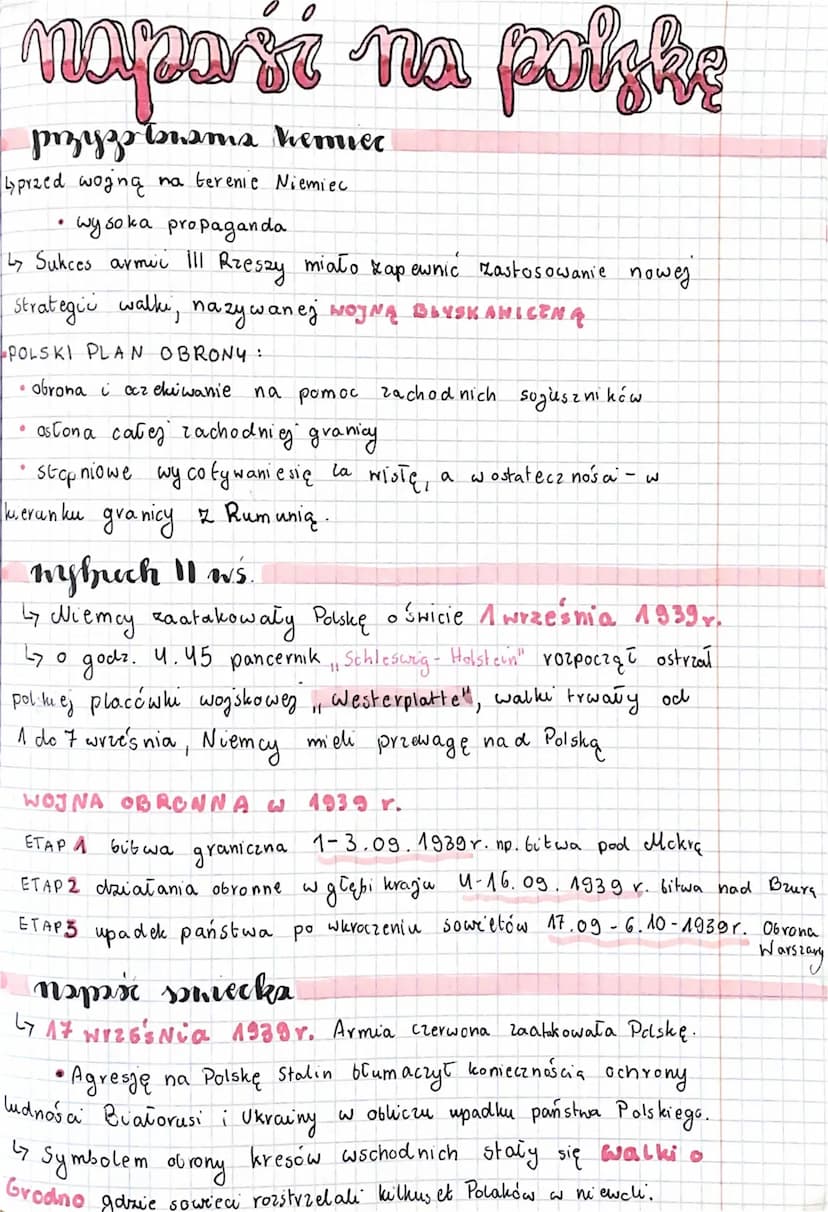 napaść na polskę
przygotowania Niemiec
↳ przed wojną na terenie Niemiec
• wysoka propaganda
↳ Sukces armii III Rzeszy miało zapewnić zastosowanie nowej
strategii walki, nazywanej WOJNĄ BŁYSKAWICZNĄ
•POLSKI PLAN OBRONY:
• obrona i oczekiwanie na pomoc zachodnich sojuszników
• osłona całej zachodniej granicy
• stopniowe wycofywanie się za wisłę, a w ostateczności - w
kierunku granicy z Rumunią.
wybuch II wś.
↳ Niemcy zaatakowały Polskę o świcie 1 września 1939r.
↳ o godz. 4.45 pancernik „Schleswig-Holstein" rozpoczął ostrzał
polskiej placówki wojskowej „Westerplatte", walki trwały od
1 do 7 września, Niemcy mieli przewagę nad Polską
WOJNA OBRONNA w 1939 r.
ETAP 1 bitwa graniczna 1-3.09.1939r. np. bitwa pod Mokrą
ETAP 2 działania obronne w głębi kraju 4-16.09.1939 r. bitwa nad Bzurą
ETAP 3 upadek państwa po wkroczeniu sowietów 17.09 - 6.10-1939r. Obrona
Warszawy
napaść sowiecka
↳ 17 wrzEśNia 1939r. Armia czerwona zaatakowała Polskę.
• Agresję na Polskę Stalin tłumaczył koniecznością ochrony
ludności Białorusi i Ukrainy w obliczu upadku państwa Polskiego.
↳ Symbolem obrony kresów wschodnich stały się walki o
Grodno gdzie sowieci rozstrzelali kilkuset Polaków w niewoli.